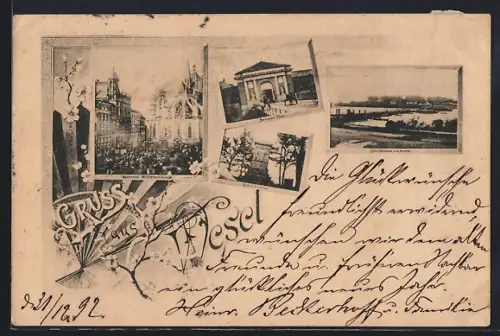 Gruss
aus
Wesel
Die Glückwünsche
freundlichst erwidernd,
wünschen wir dem alten
Freunde u. früheren Nachbar
ein glückliches neues Jahr.
Heinr. Beckerhoff u. Familie
d. 31/12. 92.